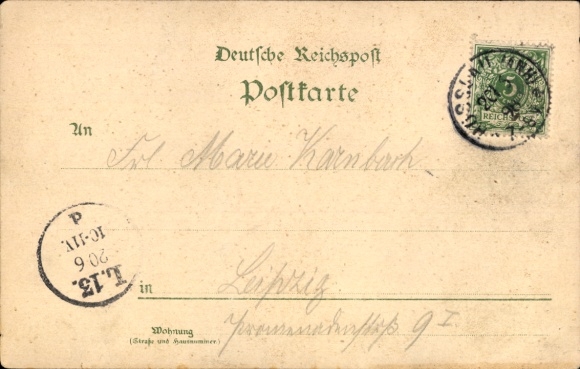 Deutsche Reichspost
Postkarte
5
REICHSPOST
An
Frl. Marie Karnbach
L.13.
20 6
10-11V.
d
in Leipzig
Wohnung
(Straße und Hausnummer)
Promenadenstrß 9 I